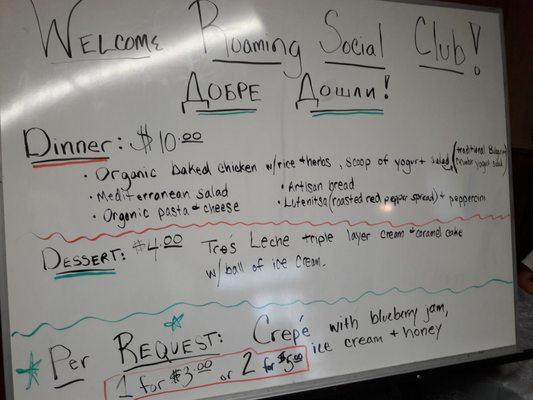 Welcome Roaming Social Club!
Добре Дошли!
Dinner: $10.00
• Organic baked chicken w/rice + herbs, scoop of yogurt salad (traditional
yogurt salad)
• Mediterranean salad • Artisan bread
• Organic pasta + cheese • Lutenitsa (roasted red pepper spread) + pepperoncini
Dessert: $4.00 Tres Leche triple layer cream + caramel cake
w/ball of ice cream.
Per Request: Crepé with blueberry jam,
ice cream + honey
1 for $3.00 or 2 for $5.00